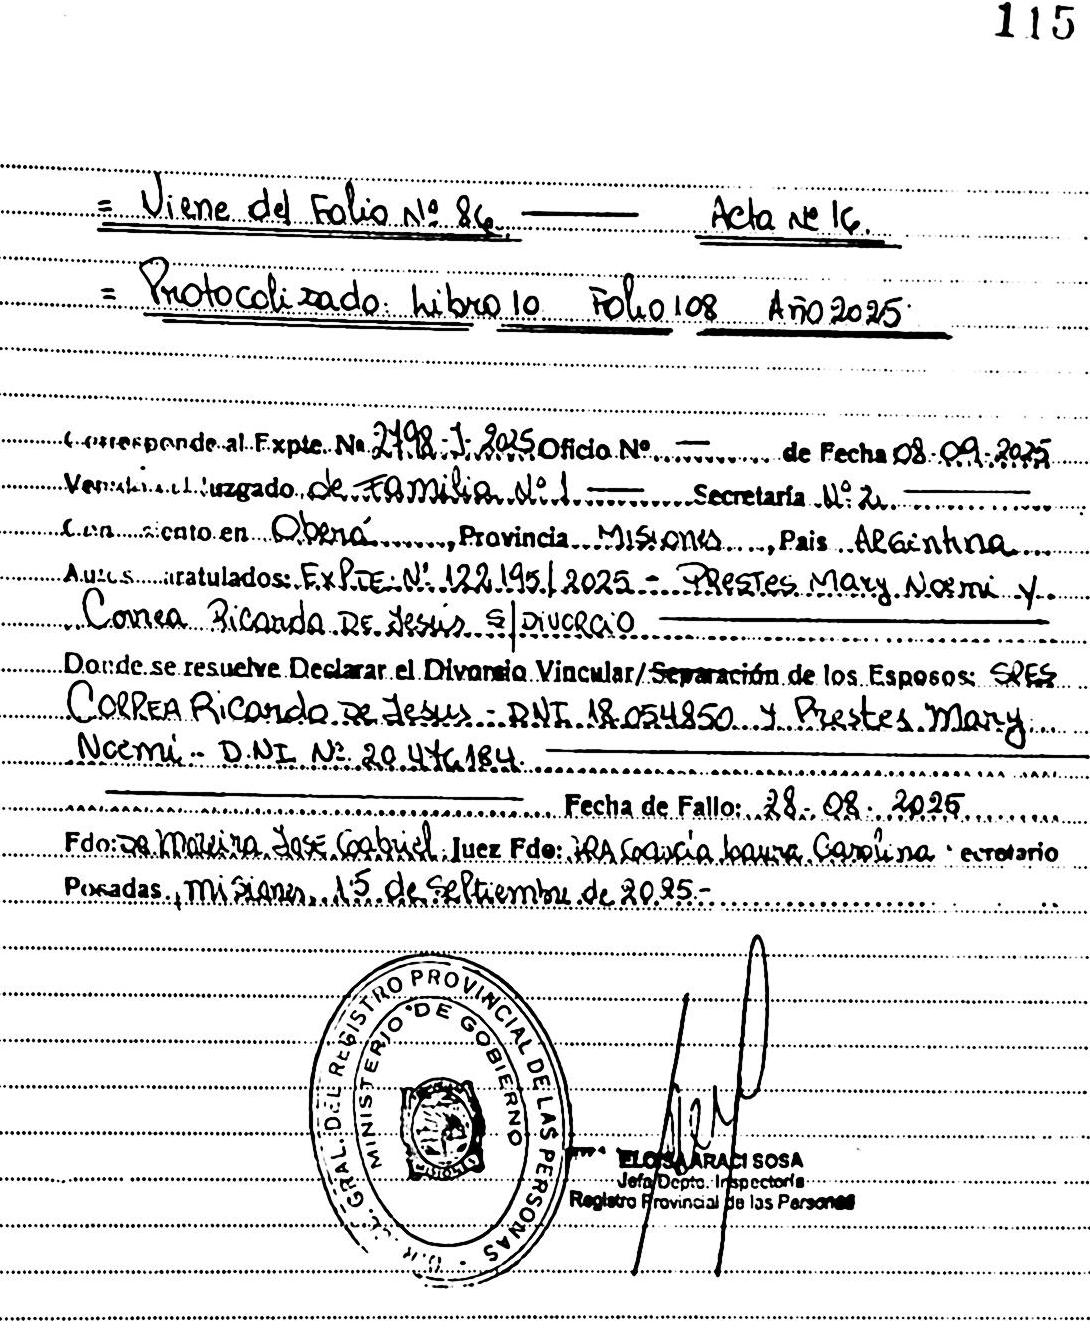 115
= Viene del Folio Nº 86. Acta Nº 16.
= Protocolizado: Libro 10 Folio 108 Año 2025.
Corresponde al Expte. Nº 2798-J-2025 Oficio Nº — de Fecha 08-09-2025
Juzgado de Familia Nº 1 — Secretaría Nº 2.
asiento en Oberá, Provincia Misiones, Pais Argentina
Autos caratulados: EXPTE. Nº 122195/2025 - Prestes Mary Noemi y
Correa Ricardo DE Jesús S/DIVORCIO
Donde se resuelve Declarar el Divorcio Vincular/Separación de los Esposos: SRES
CORREA Ricardo De Jesus - DNI 18.054850 y Prestes Mary
Noemi - D.NI Nº 20.476.184.
Fecha de Fallo: 28-08-2025
Fdo: DR Moreira José Gabriel Juez Fdo: DRA García Laura Carolina Secretario
Posadas, Misiones, 15 de Septiembre de 2025.-
GRAL. DEL REGISTRO PROVINCIAL DE LAS PERSONAS
MINISTERIO DE GOBIERNO
ELOISA ARACI SOSA
Jefa Dpto. Inspectoría
Registro Provincial de las Personas